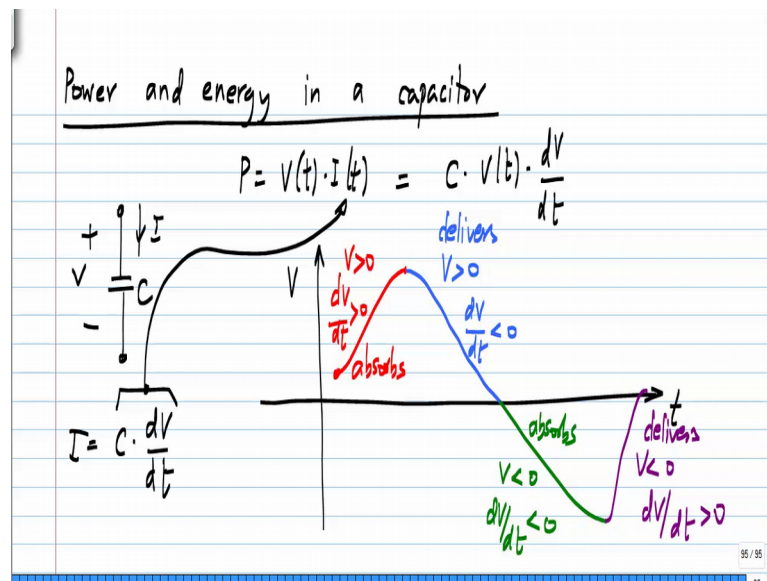 Power and energy in a capacitor
P = V(t)·I(t) = C·V(t)·dV/dt
+
V
−
I
C
I = C·dV/dt
V
V>0
dV/dt >0
absorbs
delivers
V>0
dV/dt <0
t
absorbs
V<0
dV/dt <0
delivers
V<0
dV/dt >0
95 / 95